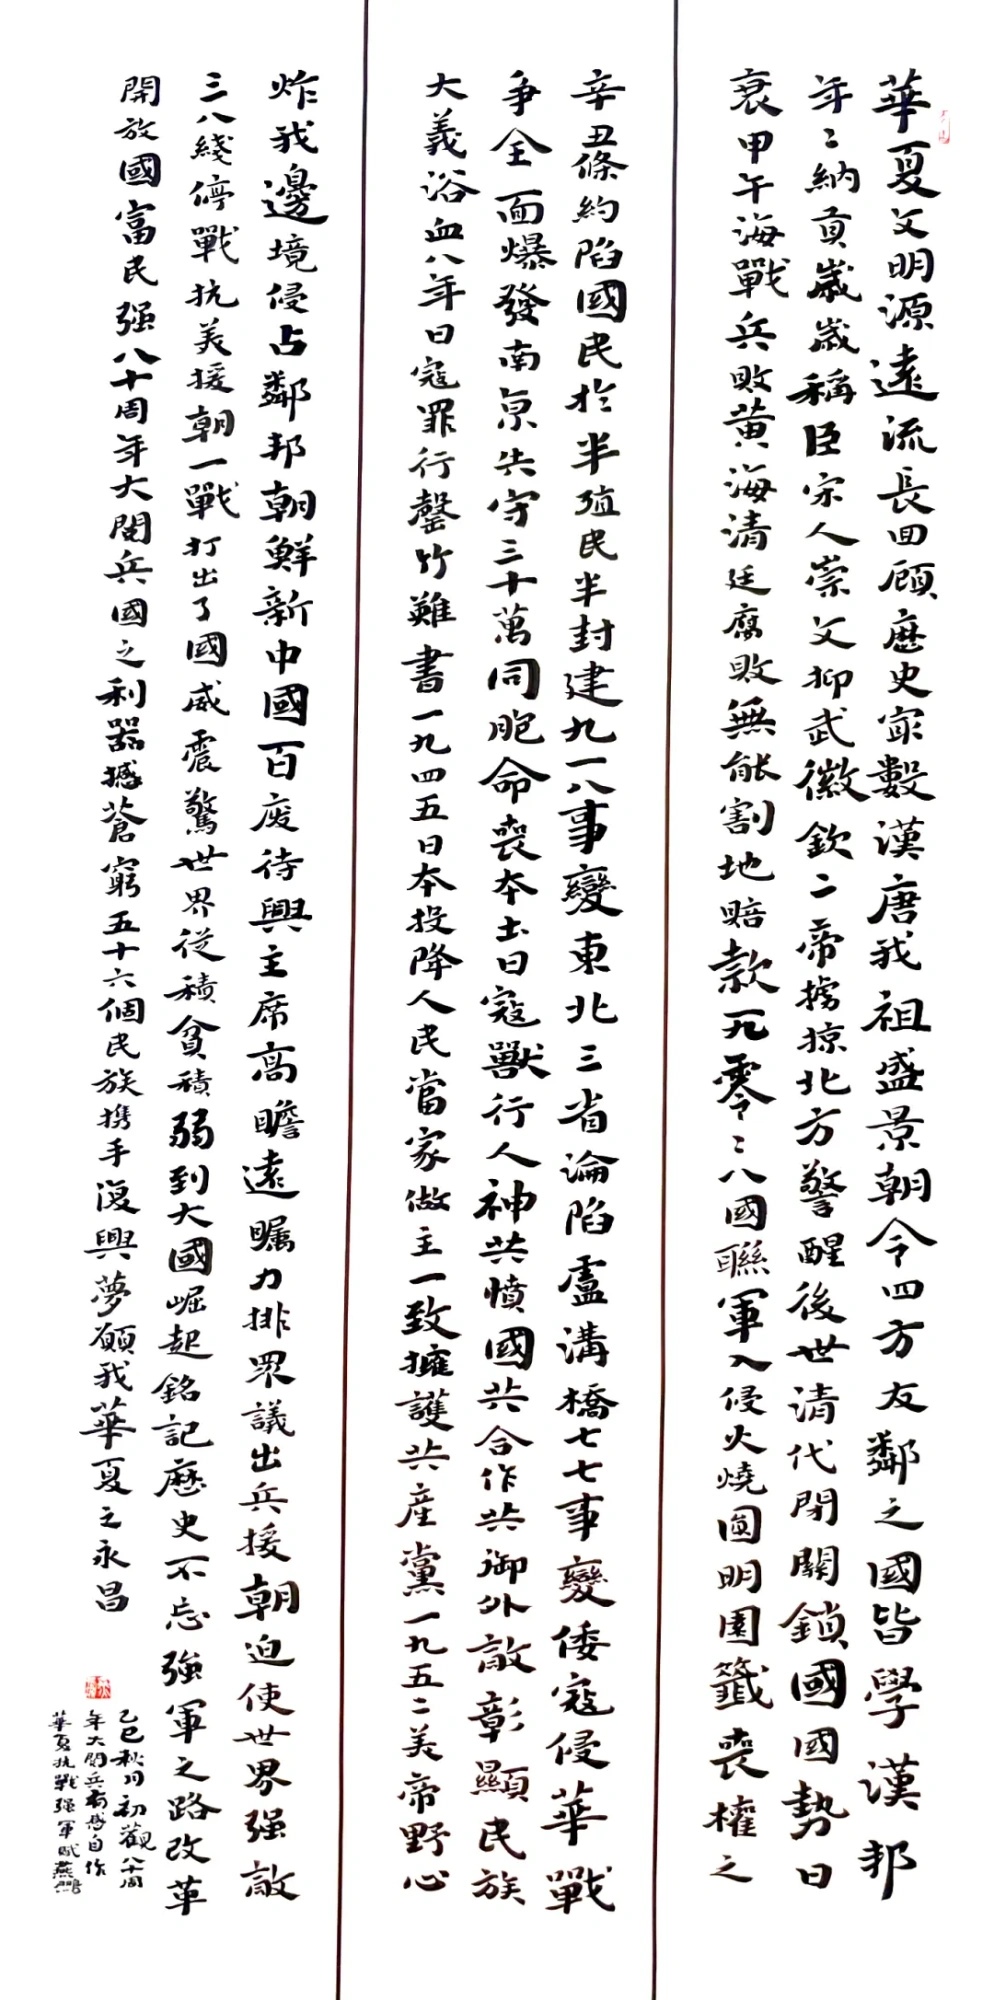 華夏文明源遠流長回顧歷史寂數漢唐我祖盛景朝令四方友鄰之國皆學漢邦
年々納貢歲歲稱臣宋人崇文抑武徽欽二帝擄掠北方警醒後世清代閉關鎖國國勢日
衰甲午海戰兵敗黄海清廷腐敗無能割地賠款一九零々八國聯軍入侵火燒圓明園籤喪權之
辛丑條約陷國民於半殖民半封建九一八事變東北三省淪陷盧溝橋七七事變倭寇侵華戰
争全面爆發南京失守三十萬同胞命喪本土日寇獸行人神共憤國共合作共御外敵彰顯民族
大義浴血八年日寇罪行罄竹難書一九四五日本投降人民當家做主一致擁護共産黨一九五二美帝野心
炸我邊境侵占鄰邦朝鮮新中國百废待興主席高瞻遠矚力排眾議出兵援朝迫使世界强敵
三八綫停戰抗美援朝一戰打出了國威震驚世界從積貧積弱到大國崛起銘記歷史不忘強軍之路改革
開放國富民强八十周年大閲兵國之利器撼蒼穹五十六個民族携手復興夢願我華夏之永昌
乙巳秋月初觀八十周
年大閲兵有感自作
華夏抗戰强軍賦燕鵬